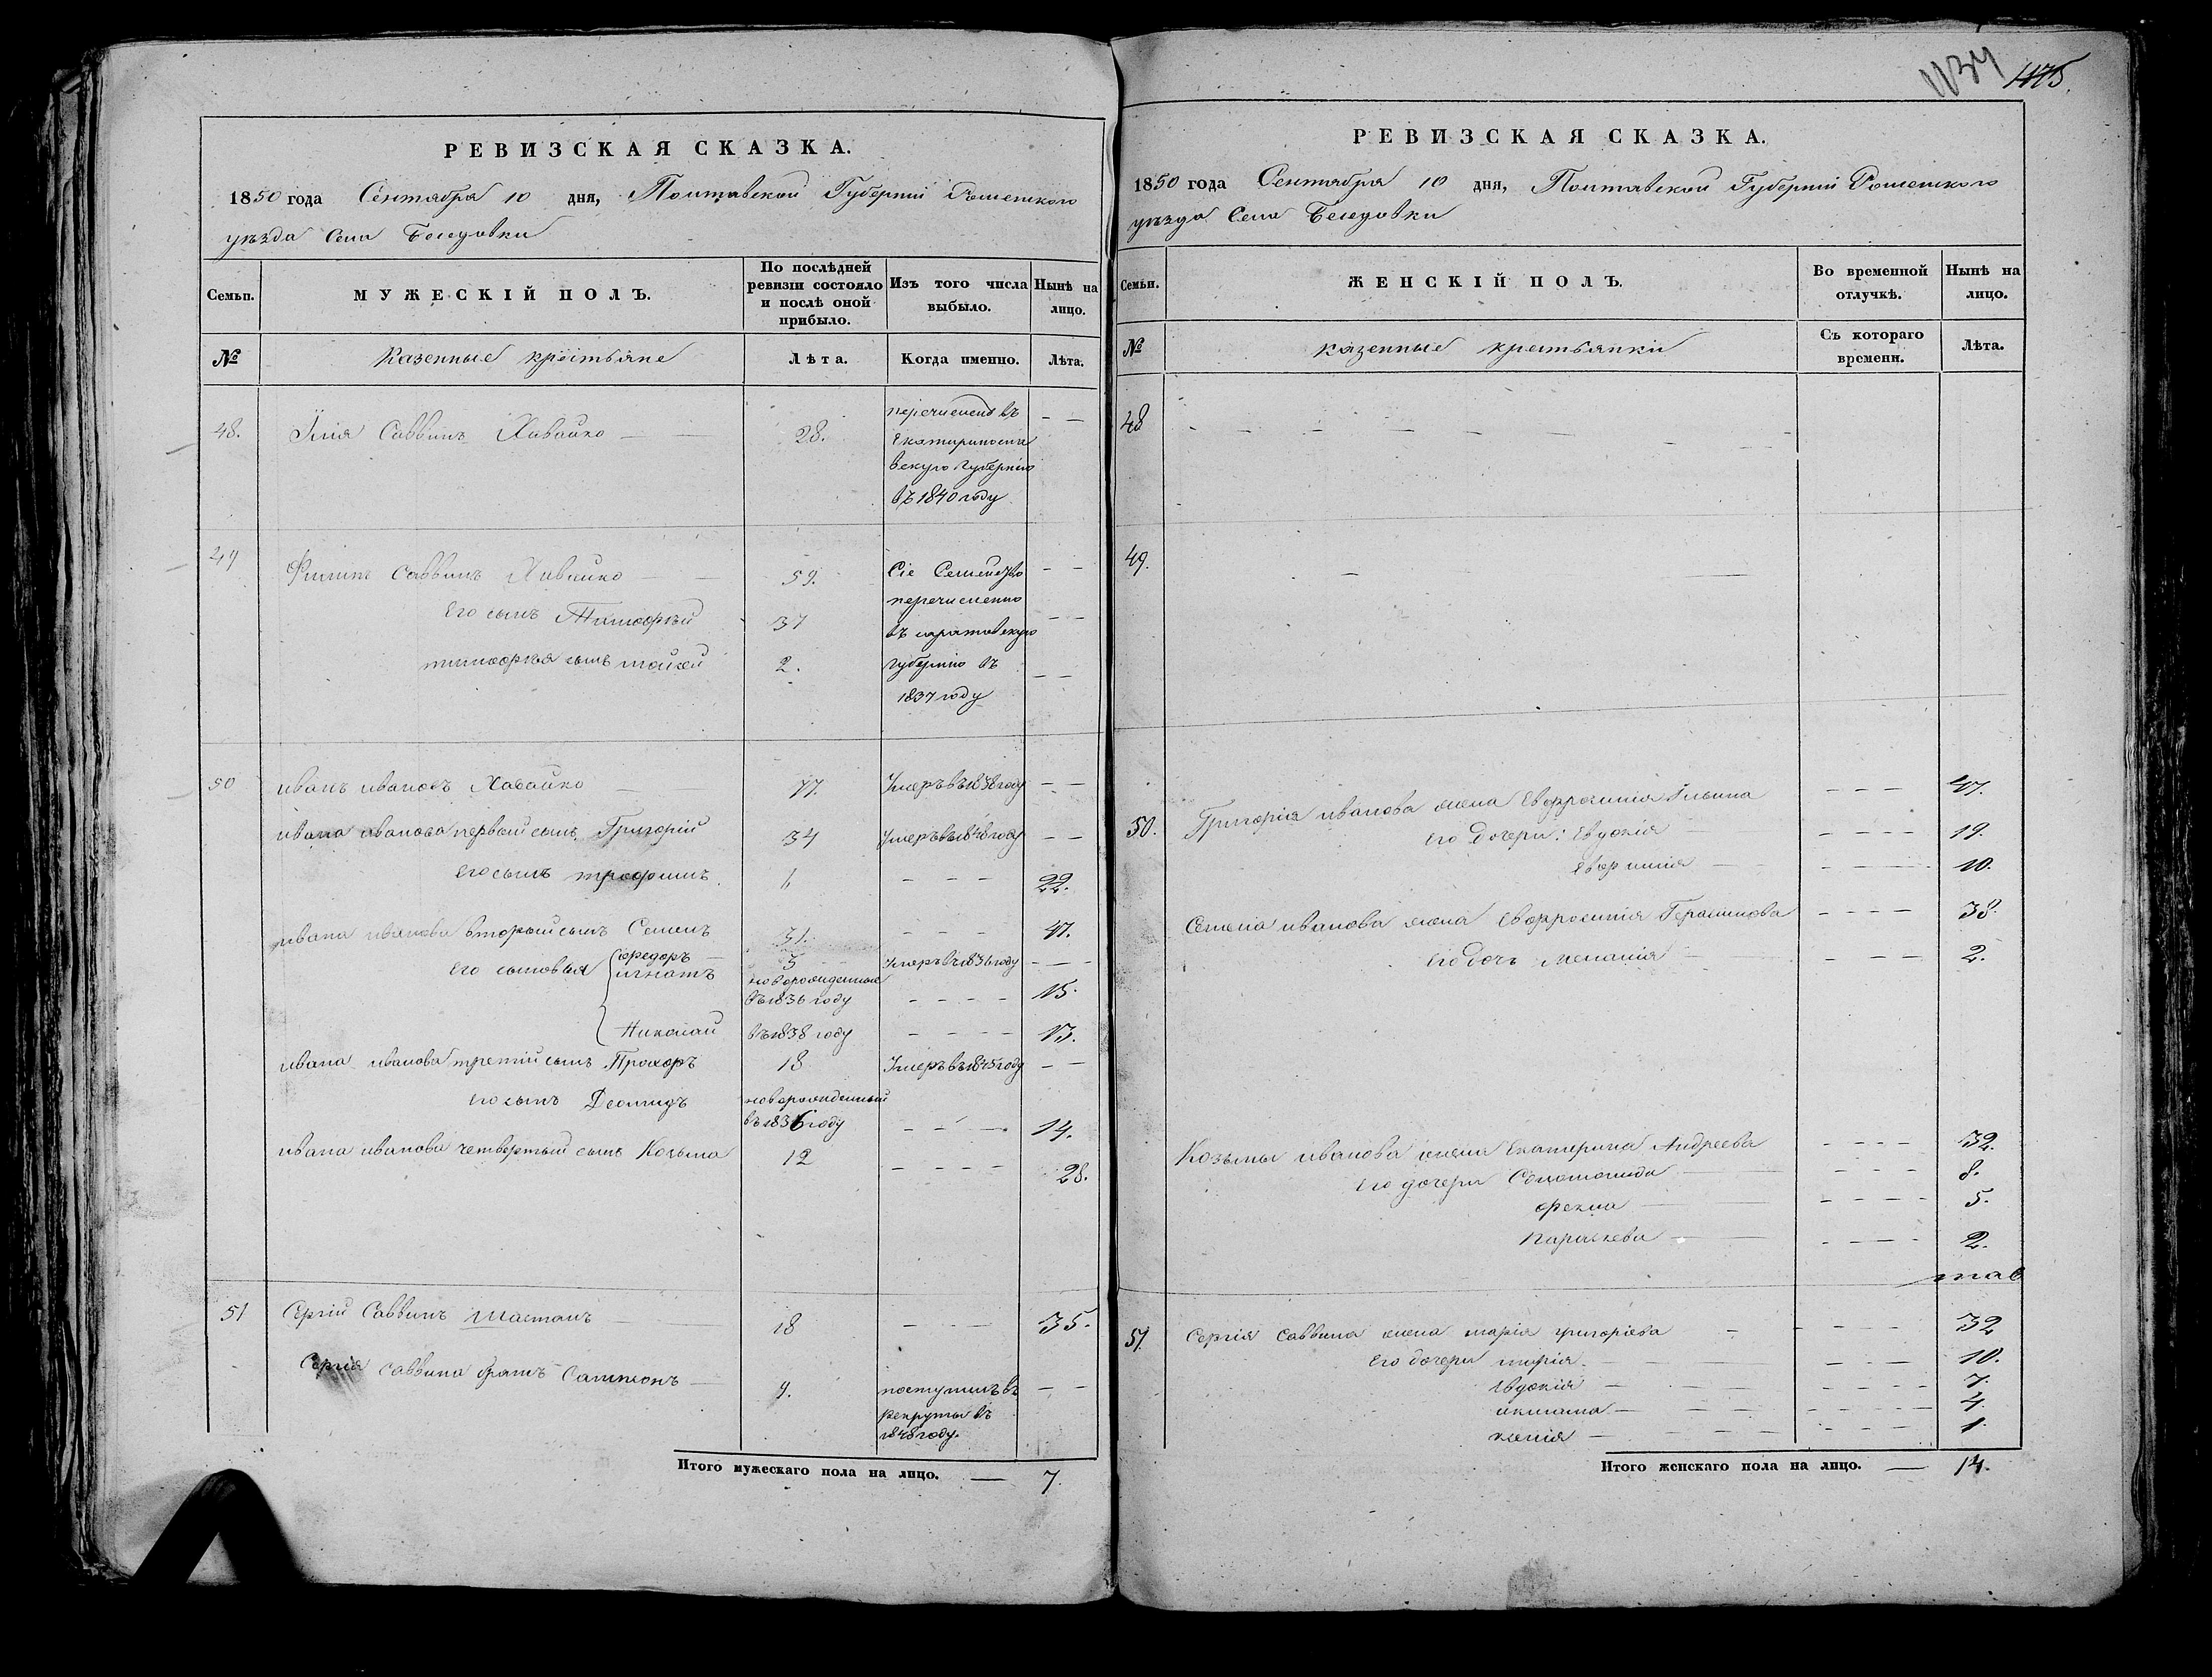 1134 1175.
РЕВИЗСКАЯ СКАЗКА.
1850 года Сентября 10 дня, Полтавской Губерніи Роменского
уѣзда Села Беседовки
Семьи. МУЖЕСКІЙ ПОЛЪ. По послѣдней ревизіи состояло и послѣ оной прибыло. Изъ того числа выбыло. Нынѣ на лицо.
№ Казенные крестьяне Лѣта. Когда именно. Лѣта.
48. Илія Саввинъ Хавайко — — 28. перечислено въ — —
Екатериносла
вскую Губернію
въ 1840 году
49 Филипъ Саввинъ Хавайко — — 59. Сіе Семейство — —
Его сынъ Тимофѣй 37 перечисленно
въ саратовскую — —
тимофѣя сынъ 2. губернію въ — —
1837 году
50 иванъ ивановъ Хавайко — 77. Умеръ въ 1838 году — —
ивана иванова первый сынъ Григорій 34 Умеръ въ 1848 году — —
Его сынъ трофимъ 6 — — — 22.
ивана иванова вторый сынъ Семенъ 31. — — — 47.
Его сыновья федоръ — 5 Умеръ въ 1836 году — — —
игнатъ новорожденные
въ 1836 году — — — — 15.
Николай въ 1838 году — — — — 13.
ивана иванова третій сынъ Прохоръ 18 Умеръ въ 1845 году — —
его сынъ Деомидъ новорожденный
въ 1836 году — — — 14.
ивана иванова четвертый сынъ Козьма 12 — — — — 28.
51 Сергій Саввинъ Шастанъ — — 18 — — — 35.
Сергія саввина братъ Сампсонъ — 9. поступилъ въ — —
рекруты въ
1848 году.
Итого мужескаго пола на лицо. — 7.
РЕВИЗСКАЯ СКАЗКА.
1850 года Сентября 10 дня, Полтавской Губерніи Роменского
уѣзда Села Беседовки
Семьи. ЖЕНСКІЙ ПОЛЪ. Во временной отлучкѣ. Нынѣ на лицо.
№ казенные крестьянки Съ котораго времени. Лѣта.
48 — — — — — — —
49. — —
50. Григорія иванова жена Евфросинія Ильина — — — 47.
его дочери: Евдокія — — — — 19.
Евфимія — — — — 10.
Семена иванова жена Евфросинія Герасимова — — — — 38.
его дочь Меланія — — — — 2.
Козьмы иванова жена Екатерина Андреева — — — — 32.
Его дочери Соломонида — — — — 8.
фекла — — — — — 5.
Параскева — — — — — 2.
51. Сергія Саввина жена марія григоріева — — — — 32
Его дочери марія — — — — 10.
Евдокія — — — — 7.
— — — — 4.
ксенія — — — — 1.
Итого женскаго пола на лицо. — 14.